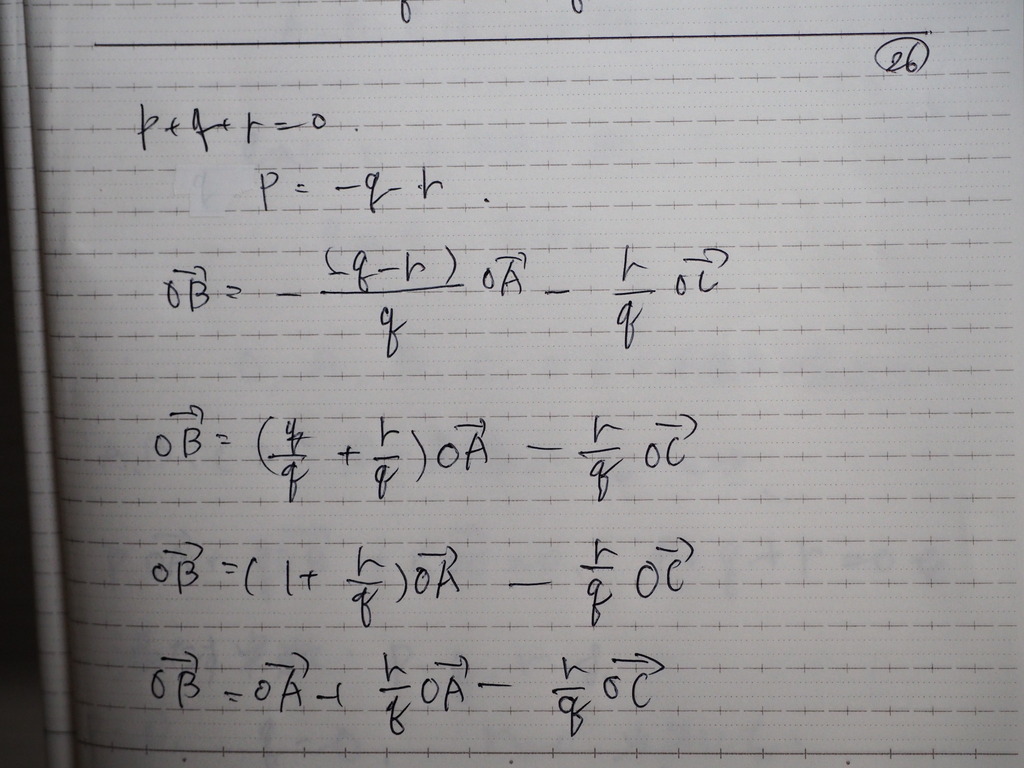 26
p+q+r=0.
p = -q-r.
\vec{OB} = - \frac{(-q-r)}{q} \vec{OA} - \frac{r}{q} \vec{OC}
\vec{OB} = (\frac{q}{q} + \frac{r}{q}) \vec{OA} - \frac{r}{q} \vec{OC}
\vec{OB} = (1 + \frac{r}{q}) \vec{OA} - \frac{r}{q} \vec{OC}
\vec{OB} = \vec{OA} + \frac{r}{q} \vec{OA} - \frac{r}{q} \vec{OC}